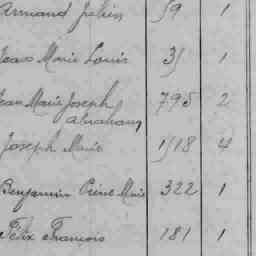 Armand Julien 59 1
Jean Marie Louis 31 1
Jean Marie Joseph 795 2
Abraham
Joseph Marie 1118 4
Benjamin Pierre Marie 322 1
Félix François 181 1